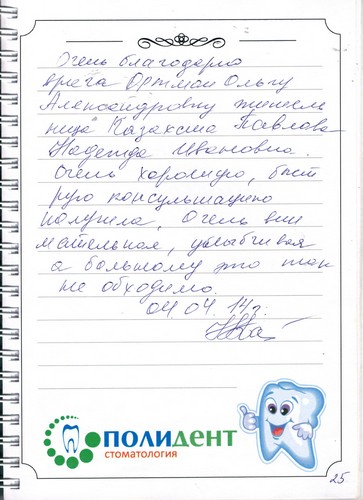 Очень благодарна
врача Ортман Ольгу
Александровну житель
ница Казахсана Павлова
Надежда Ивановна
Очень хорошую, быст
рую консультацию
получила. Очень вни
мательная, улыбчивая
а больному это так
не обходимо.
04.04.14г.
ПОЛИДЕНТ
СТОМАТОЛОГИЯ
25